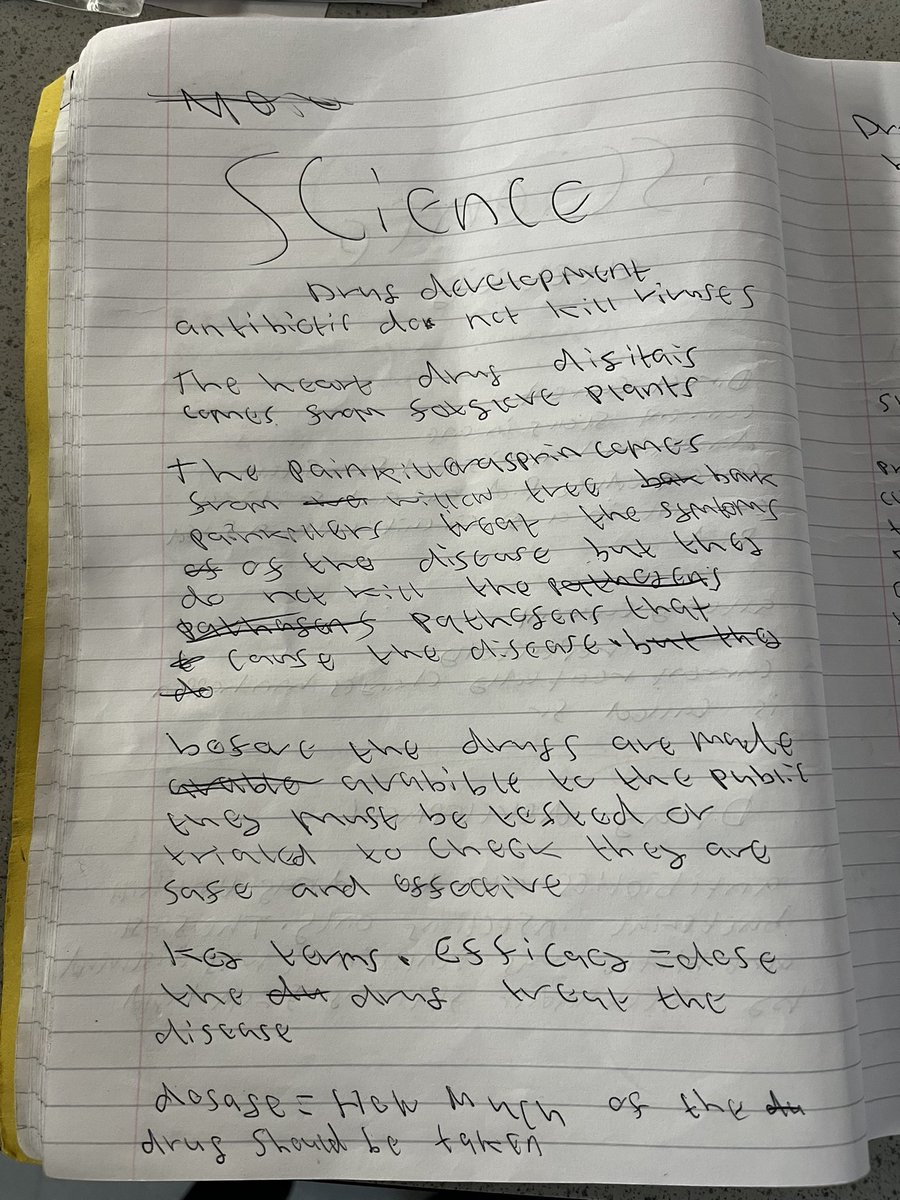 Science
Drug development
antibiotic do not kill viruses
The heart drug digitais
comes from foxglove plants
the painkillarasprin comes
from willow tree bark
painkillers treat the symtoms
of the disease but they
do not kill the
pathogens that
cause the disease.
before the drugs are made
avabible to the public
they must be tested or
trialed to check they are
safe and effective
Key tarms. Efficacy = dose
the drug treat the
disease
dosage = How much of the
drug should be taken